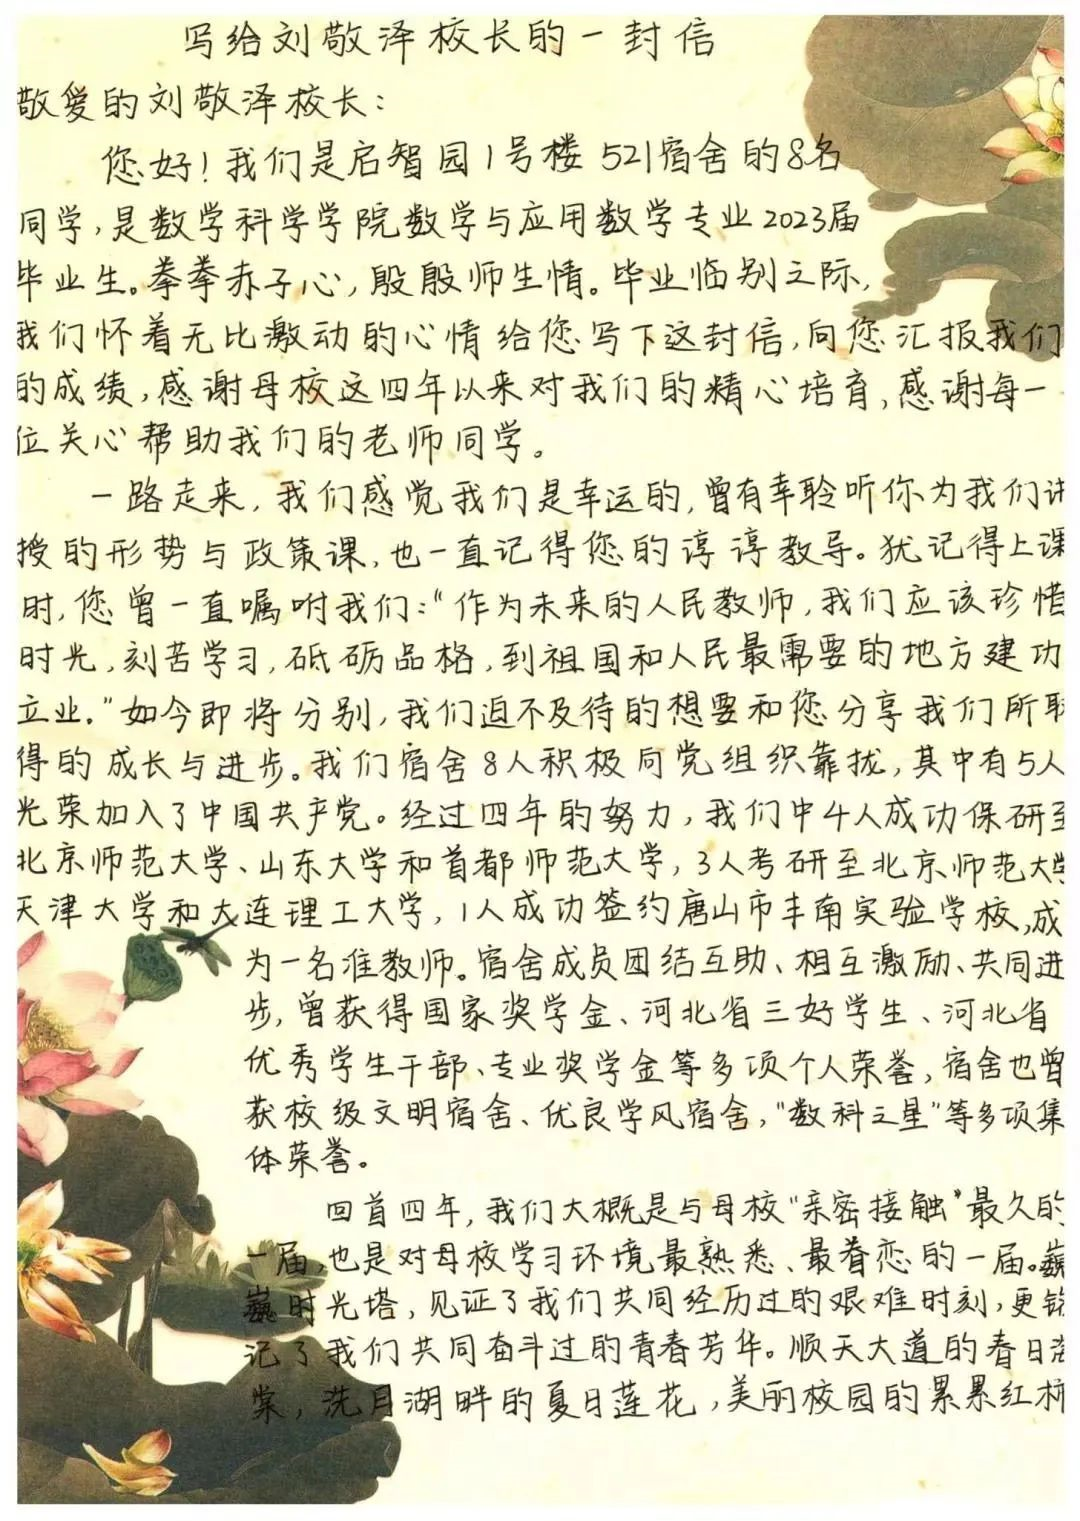 写给刘敬泽校长的一封信
敬爱的刘敬泽校长：
您好！我们是启智园1号楼521宿舍的8名
同学，是数学科学学院数学与应用数学专业2023届
毕业生。拳拳赤子心，殷殷师生情。毕业临别之际，
我们怀着无比激动的心情给您写下这封信，向您汇报我们
的成绩，感谢母校这四年以来对我们的精心培育，感谢每一
位关心帮助我们的老师同学。
一路走来，我们感觉我们是幸运的，曾有幸聆听你为我们讲
授的形势与政策课，也一直记得您的谆谆教导。犹记得上课
时，您曾一直嘱咐我们：“作为未来的人民教师，我们应该珍惜
时光，刻苦学习，砥砺品格，到祖国和人民最需要的地方建功
立业。”如今即将分别，我们迫不及待的想要和您分享我们所取
得的成长与进步。我们宿舍8人积极向党组织靠拢，其中有5人
光荣加入了中国共产党。经过四年的努力，我们中4人成功保研至
北京师范大学、山东大学和首都师范大学，3人考研至北京师范大学
天津大学和大连理工大学，1人成功签约唐山市丰南实验学校，成
为一名准教师。宿舍成员团结互助、相互激励、共同进
步，曾获得国家奖学金、河北省三好学生、河北省
优秀学生干部、专业奖学金等多项个人荣誉，宿舍也曾
获校级文明宿舍、优良学风宿舍，“数科之星”等多项集
体荣誉。
回首四年，我们大概是与母校“亲密接触”最久的
一届，也是对母校学习环境最熟悉、最眷恋的一届。巍
巍时光塔，见证了我们共同经历过的艰难时刻，更铭
记了我们共同奋斗过的青春芳华。顺天大道的春日海
棠，洗月湖畔的夏日莲花，美丽校园的累累红柿